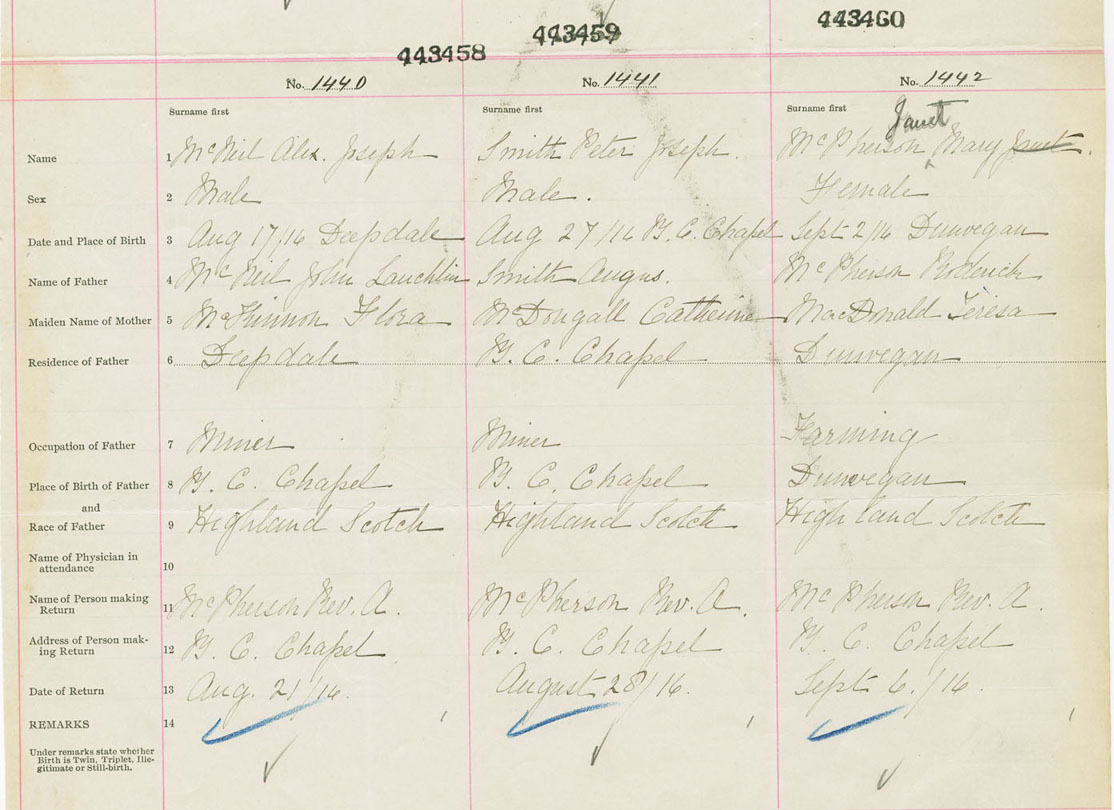 443458 443459 443460
No. 1440 No. 1441 No. 1442
Surname first Surname first Surname first Janet
Name 1 McNeil Alex. Joseph Smith Peter Joseph. McPherson Mary Janet.
Sex 2 Male Male. Female
Date and Place of Birth 3 Aug 17/16 Deepdale Aug 27/16 B. C. Chapel Sept 2/16 Dunvegan
Name of Father 4 McNeil John Lauchlin Smith Angus. McPherson Roderick
Maiden Name of Mother 5 McKinnon Flora McDougall Catherine MacDonald Teresa
Residence of Father 6 Deepdale B. C. Chapel Dunvegan
Occupation of Father 7 Miner Miner Farming
Place of Birth of Father 8 B. C. Chapel B. C. Chapel Dunvegan
and
Race of Father 9 Highland Scotch Highland Scotch Highland Scotch
Name of Physician in
attendance 10
Name of Person making
Return 11 McPherson Rev. A. McPherson Rev. A. McPherson Rev. A.
Address of Person mak-
ing Return 12 B. C. Chapel B. C. Chapel B. C. Chapel
Date of Return 13 Aug. 21/16. August 28/16. Sept 6./16.
REMARKS 14
Under remarks state whether
Birth is Twin, Triplet, Ille-
gitimate or Still-birth.